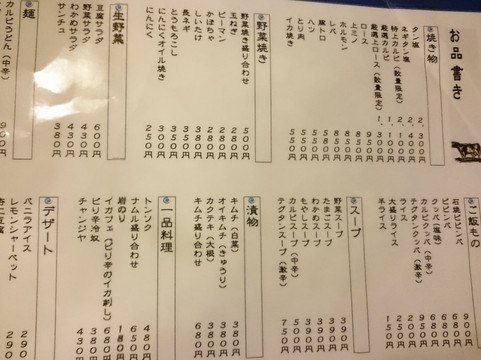 お品書き
焼き物
タン塩
ネギタン塩
特上カルビ（数量限定）
厳選カルビ
厳選上ロース（数量限定）
ロース
上ミノ
ホルモン
レバー
ハツ
豚トロ
とり肉
イカ焼き 550円
野菜焼き
野菜焼き盛り合わせ 500円
玉ねぎ 280円
ピーマン 280円
かぼちゃ 280円
しいたけ
長ネギ 350円
とうもろこし 350円
にんにくオイル焼き 350円
にんにく 250円
生野菜
豆腐サラダ 600円
野菜サラダ 480円
わかめサラダ 430円
サンチュ 380円
麺
カルビうどん（中辛） 900円
ご飯もの
石焼ビビンバ 900円
ビビンバ
クッパ（塩味）
カルビクッパ（中辛）
テグタンクッパ（激辛）
ライス 200円
大盛りライス
半ライス 150円
スープ
野菜スープ 390円
たまごスープ 390円
わかめスープ 390円
もやしスープ 390円
カルビスープ（中辛）
テグタンスープ（激辛） 750円
漬物
キムチ（白菜） 380円
オイキムチ（きゅうり） 380円
カクテキ（大根） 380円
キムチ盛り合わせ 680円
一品料理
トンソク 480円
ナムル盛り合わせ 650円
岩のり 180円
イカフェ（ピリ辛のイカ刺し） 680円
ピリ辛冷奴 380円
チャンジャ 430円
デザート
バニラアイス 290
レモンシャーベット 290